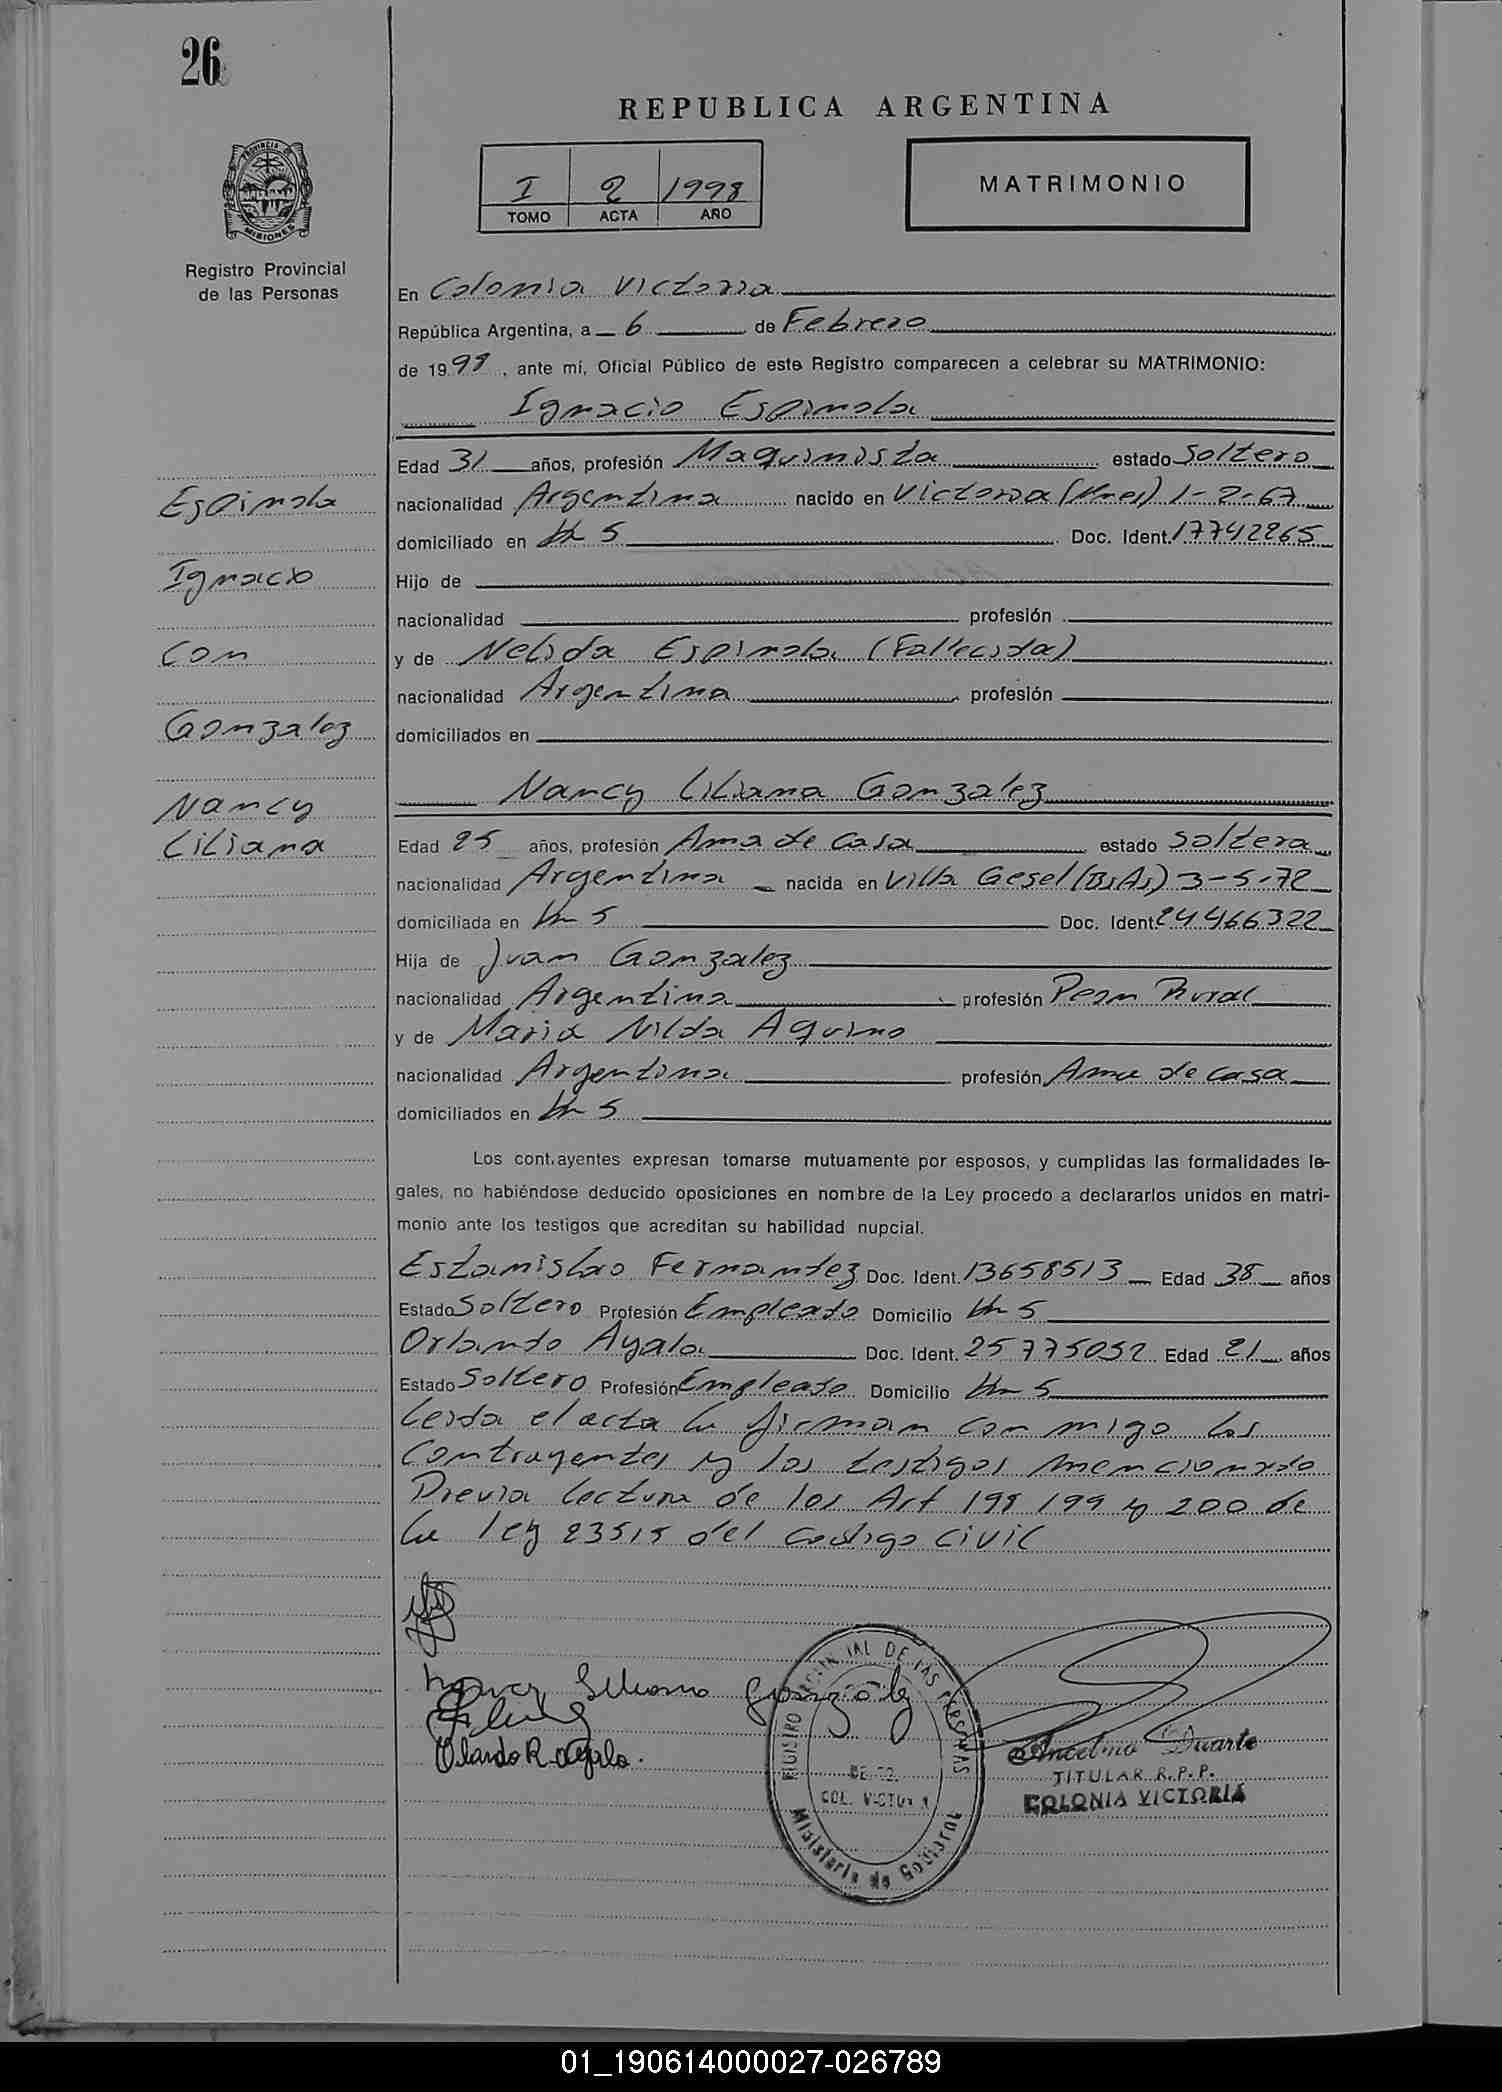 26
REPUBLICA ARGENTINA
I 2 1998
TOMO ACTA AÑO
MATRIMONIO
PROVINCIA DE
MISIONES
Registro Provincial
de las Personas
En Colonia Victoria
República Argentina, a 6 de Febrero
de 1998, ante mí, Oficial Público de este Registro comparecen a celebrar su MATRIMONIO:
Ignacio Espinola
Edad 31 años, profesión Maquinista estado Soltero
Espinola
nacionalidad Argentina nacido en Victoria (Mnes) 1-2-67
domiciliado en Km 5 Doc. Ident. 17742265
Ignacio
Hijo de
nacionalidad profesión
Con
y de Nelida Espinola (Fallecida)
nacionalidad Argentina profesión
Gonzalez
domiciliados en
Nancy
Liliana
Nancy Liliana Gonzalez
Edad 25 años, profesión Ama de casa estado Soltera
nacionalidad Argentina nacida en Villa Gesel (BsAs) 3-5-72
domiciliada en Km 5 Doc. Ident. 24466322
Hija de Juan Gonzalez
nacionalidad Argentina profesión Peon Rural
y de Maria Nilda Aquino
nacionalidad Argentina profesión Ama de casa
domiciliados en Km 5
Los cont.ayentes expresan tomarse mutuamente por esposos, y cumplidas las formalidades le-
gales, no habiéndose deducido oposiciones en nombre de la Ley procedo a declararlos unidos en matri-
monio ante los testigos que acreditan su habilidad nupcial.
Estanislao Fernandez Doc. Ident. 13658513 Edad 38 años
Estado Soltero Profesión Empleado Domicilio Km 5
Orlando Ayala Doc. Ident. 25775052 Edad 21 años
Estado Soltero Profesión Empleado Domicilio Km 5
Leida el acta la firman con migo los
Contrayentes y los testigos mencionado
Previa lectura de los Art 198 199 y 200 de
la ley 23515 del codigo civil
Nancy Liliana Gonzalez
Orlando R Ayala.
DE LAS PERSONAS
Ministerio de Gobierno
Ancelmo Duarte
TITULAR R.P.P.
COLONIA VICTORIA
01_190614000027-026789